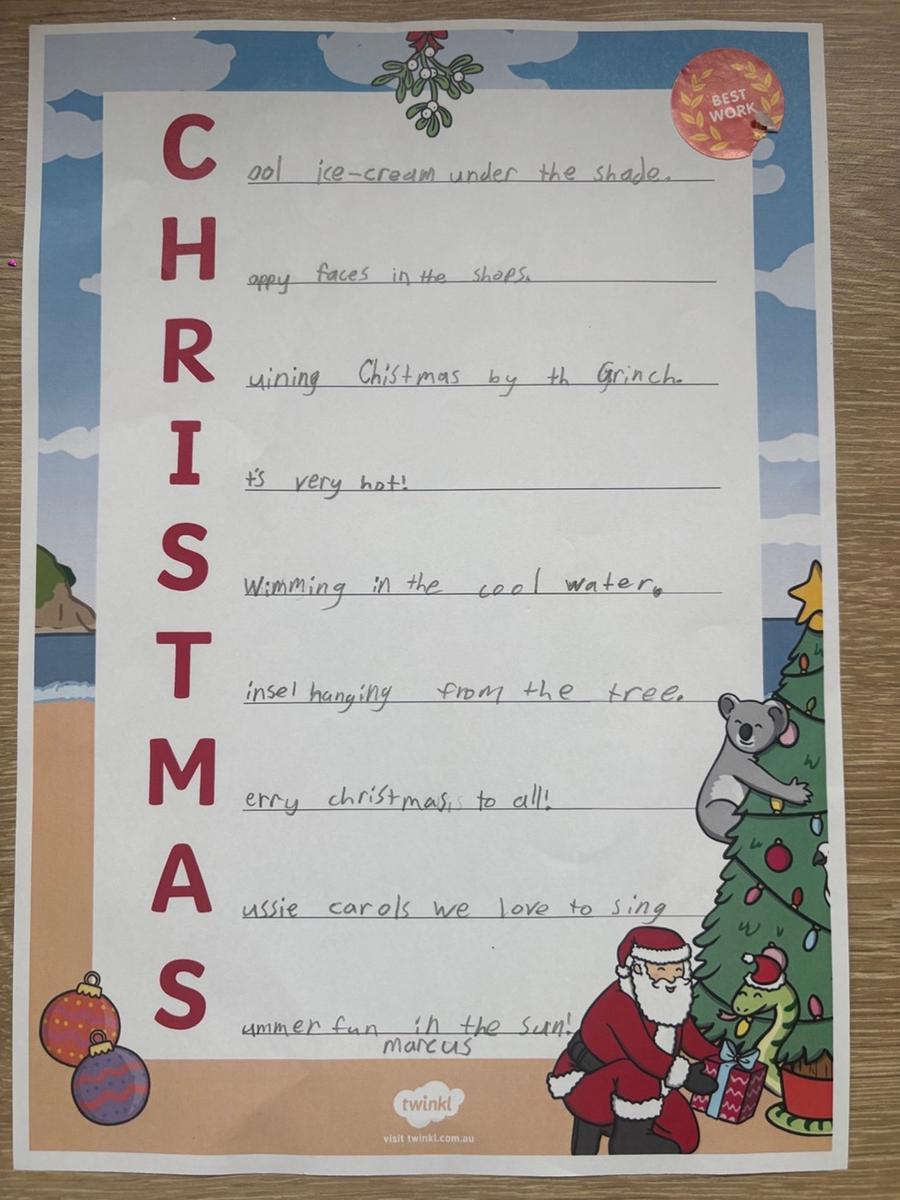 BEST
WORK
Cool ice-cream under the shade.
Happy faces in the shops.
Ruining Chistmas by th Grinch.
It's very hot!
Swimming in the cool water.
Tinsel hanging from the tree.
Merry christmas, to all!
Aussie carols we love to sing
Summer fun in the sun!
marcus
twinkl
visit twinkl.com.au